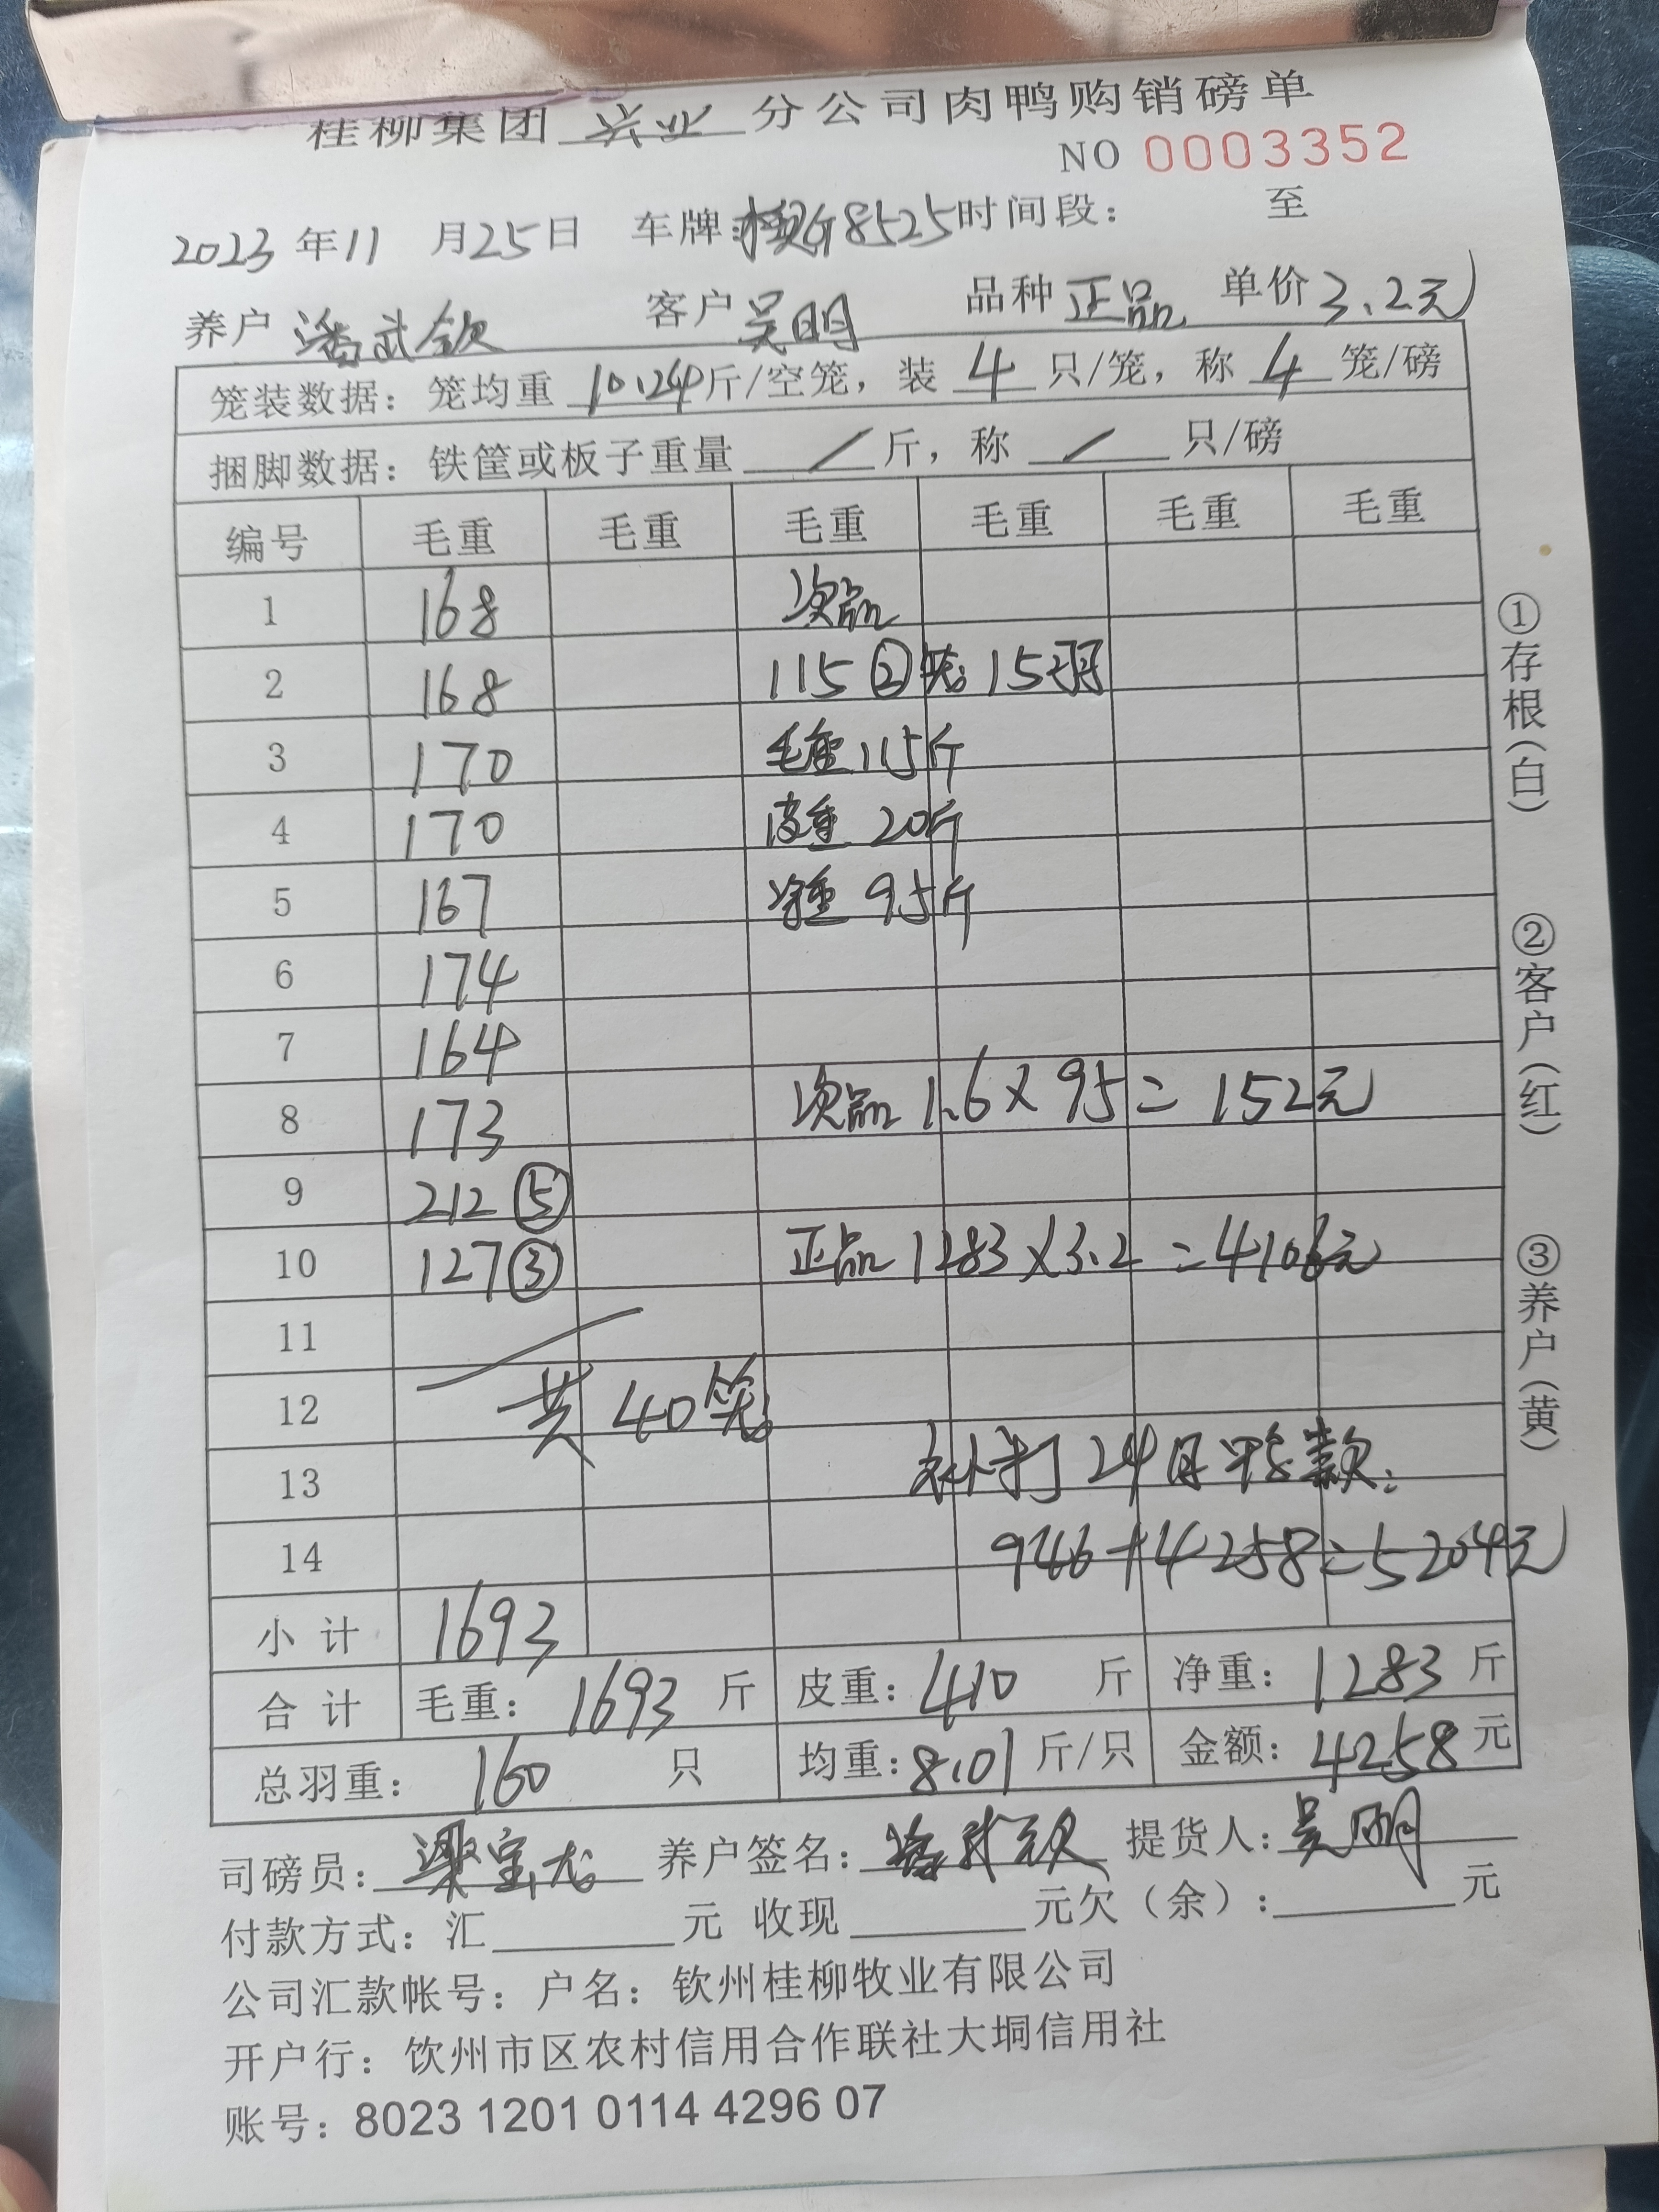 桂柳集团 兴业 分公司肉鸭购销磅单
NO 0003352
2023 年 11 月 25 日 车牌: 8525 时间段: 至
养户 潘武钦 客户 吴明 品种 正品 单价 3.2元
笼装数据: 笼均重 10.24 斤/空笼, 装 4 只/笼, 称 4 笼/磅
捆脚数据: 铁筐或板子重量 / 斤, 称 / 只/磅
编号 毛重 毛重 毛重 毛重 毛重 毛重
1 168 次品
2 168 115 ② 笼 15羽
3 170 毛重 115斤
4 170 皮重 20斤
5 167 净重 95斤
6 174
7 164
8 173 次品 1.6×95=152元
9 212 ⑤
10 127 ③ 正品 1283×3.2=4106元
11
12 共 40笼
13 补打 24日鸭款:
14 946+4258=5204元
小计 1693
合计 毛重: 1693 斤 皮重: 410 斤 净重: 1283 斤
总羽重: 160 只 均重: 8.01 斤/只 金额: 4258 元
司磅员: 梁宝龙 养户签名: 潘武钦 提货人: 吴明
付款方式: 汇 元 收现 元欠(余): 元
公司汇款帐号: 户名: 钦州桂柳牧业有限公司
开户行: 钦州市区农村信用合作联社大垌信用社
账号: 8023 1201 0114 4296 07
①存根(白) ②客户(红) ③养户(黄)